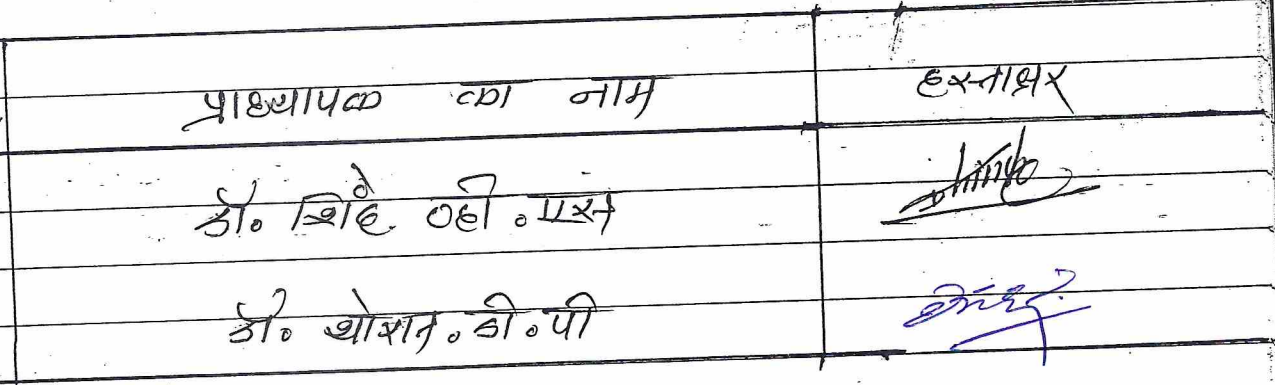 प्राध्यापक का नाम हस्ताक्षर
डॉ. शिंदे व्ही. एस
डॉ. थोरात. डी. पी